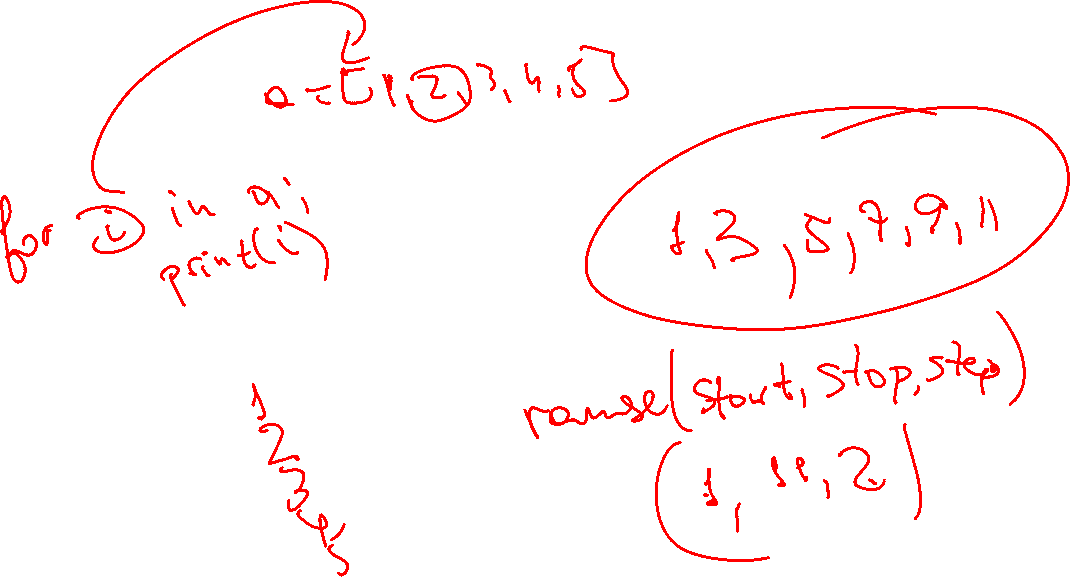 a = [1, 2, 3, 4, 5]
for i in a:
print(i)
1
2
3
4
5
1, 3, 5, 7, 9, 11
range(start, stop, step)
(1, 11, 2)